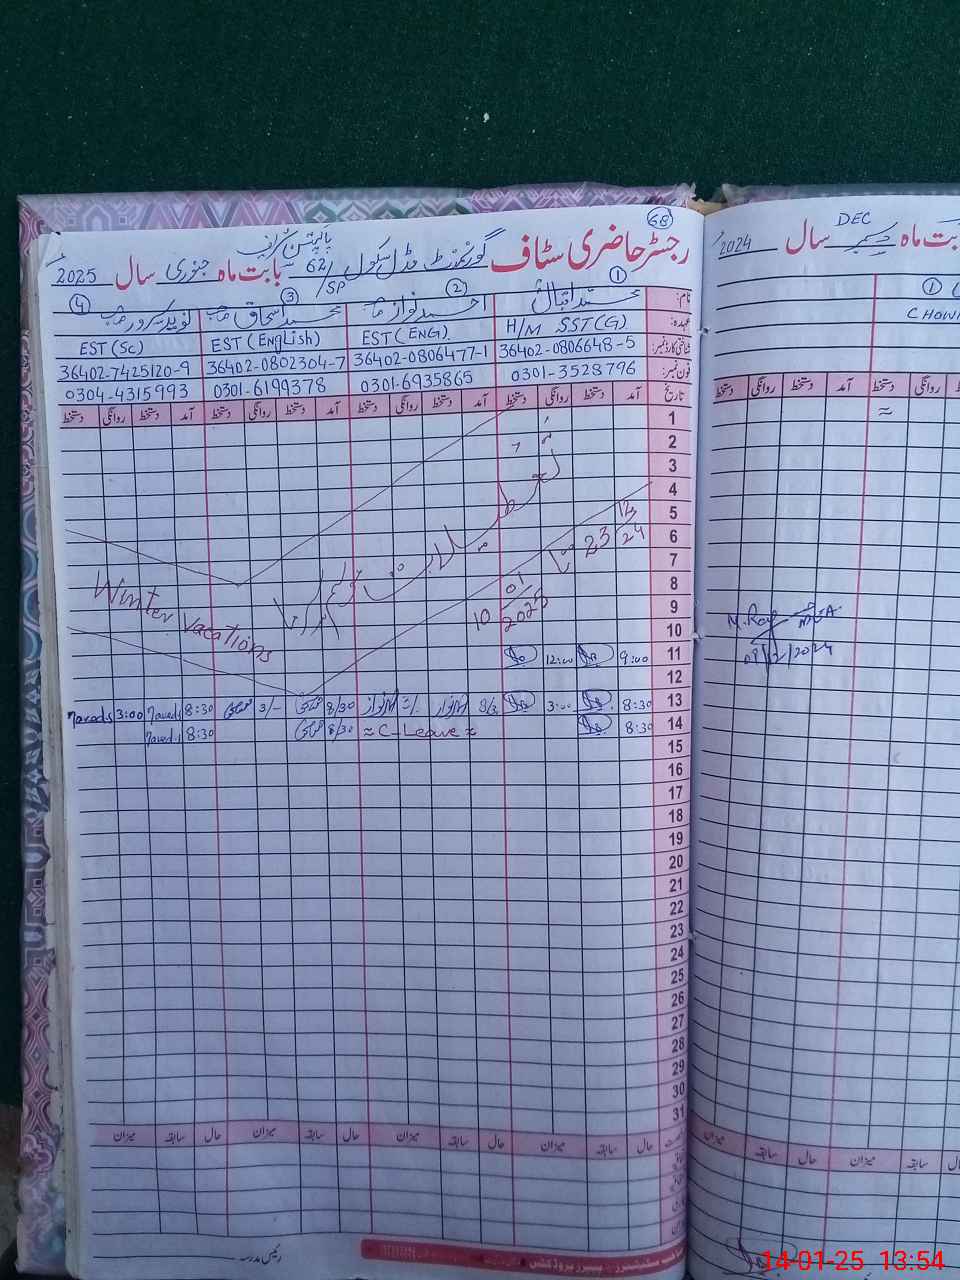 68
رجسٹر حاضری سٹاف گورنمنٹ مڈل سکول 62/SP پاکپتن شریف بابت ماہ جنوری سال 2025
① ② ③ ④
نام: محمد اقبال احمد نواز صاحب محمد اسحاق صاحب نوید سرور صاحب
عہدہ: H/M SST(G) EST(ENG) EST(English) EST(Sc)
شناختی کارڈ نمبر: 36402-0806648-5 36402-0806477-1 36402-0802304-7 36402-7425120-9
فون نمبر: 0301-3528796 0301-6935865 0301-6199378 0304-4315993
تاریخ آمد دستخط روانگی دستخط آمد دستخط روانگی دستخط آمد دستخط روانگی دستخط آمد دستخط روانگی دستخط
1
2
3
4
5
6
7
8
9
10
تعطیلات موسم سرما
23 12/24 تا 10 01/2025
Winter vacations
11 9:00 12:00
12
13 8:30 3:00 8/3 نواز 3/- 8/30 3/- 8:30 Naveeds 3:00 Naveeds
14 8:30 ≈ C-Leave ≈ 8/30 8:30 Naveeds
15
16
17
18
19
20
21
22
23
24
25
26
27
28
29
30
31
حال سابقہ میزان حال سابقہ میزان حال سابقہ میزان حال سابقہ میزان
رئیس مدرسہ
DEC
بابت ماہ دسمبر سال 2024
①
CHOW
آمد دستخط روانگی دستخط
≈
M. Rag
09/12/2024
میزان سابقہ حال میزان سابقہ حال
14-01-25 13:54